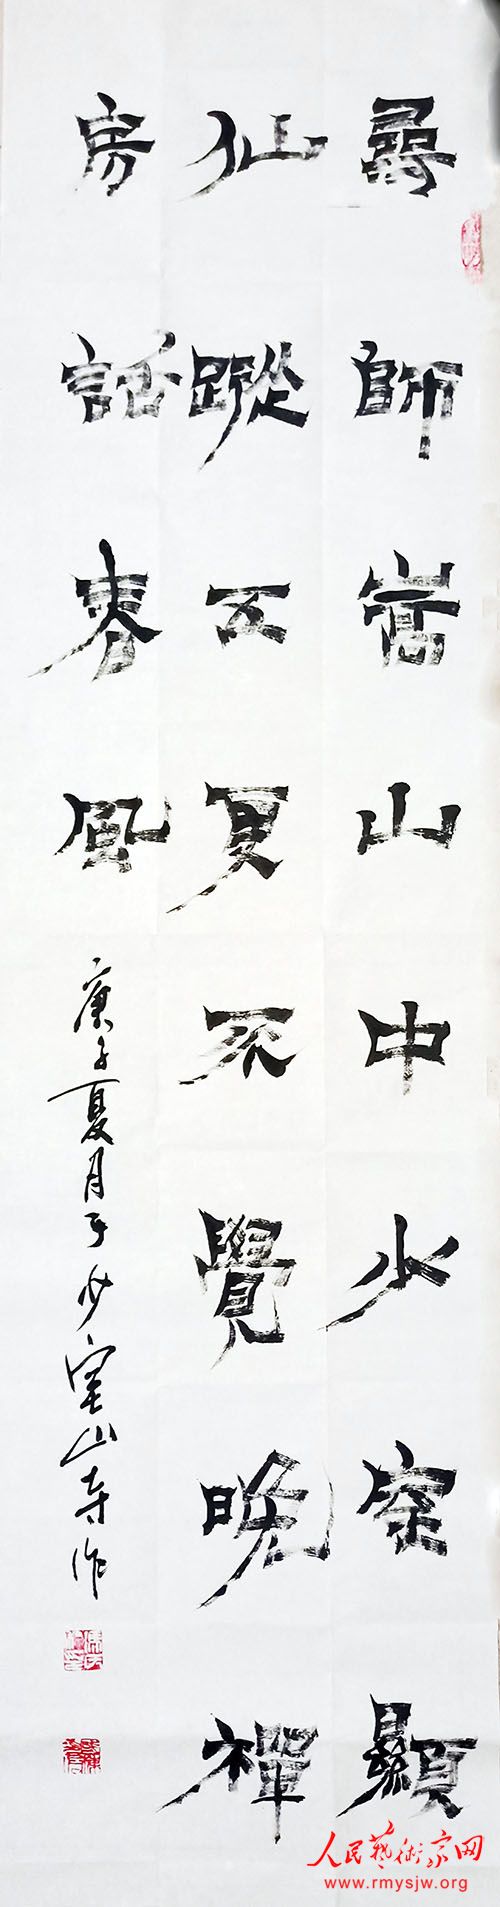 尋師嵩山中少室顯
仙蹤五更不覺晚禪
房話春風
庚子夏月于少室山寺作
人民藝術家网
www.rmysjw.org